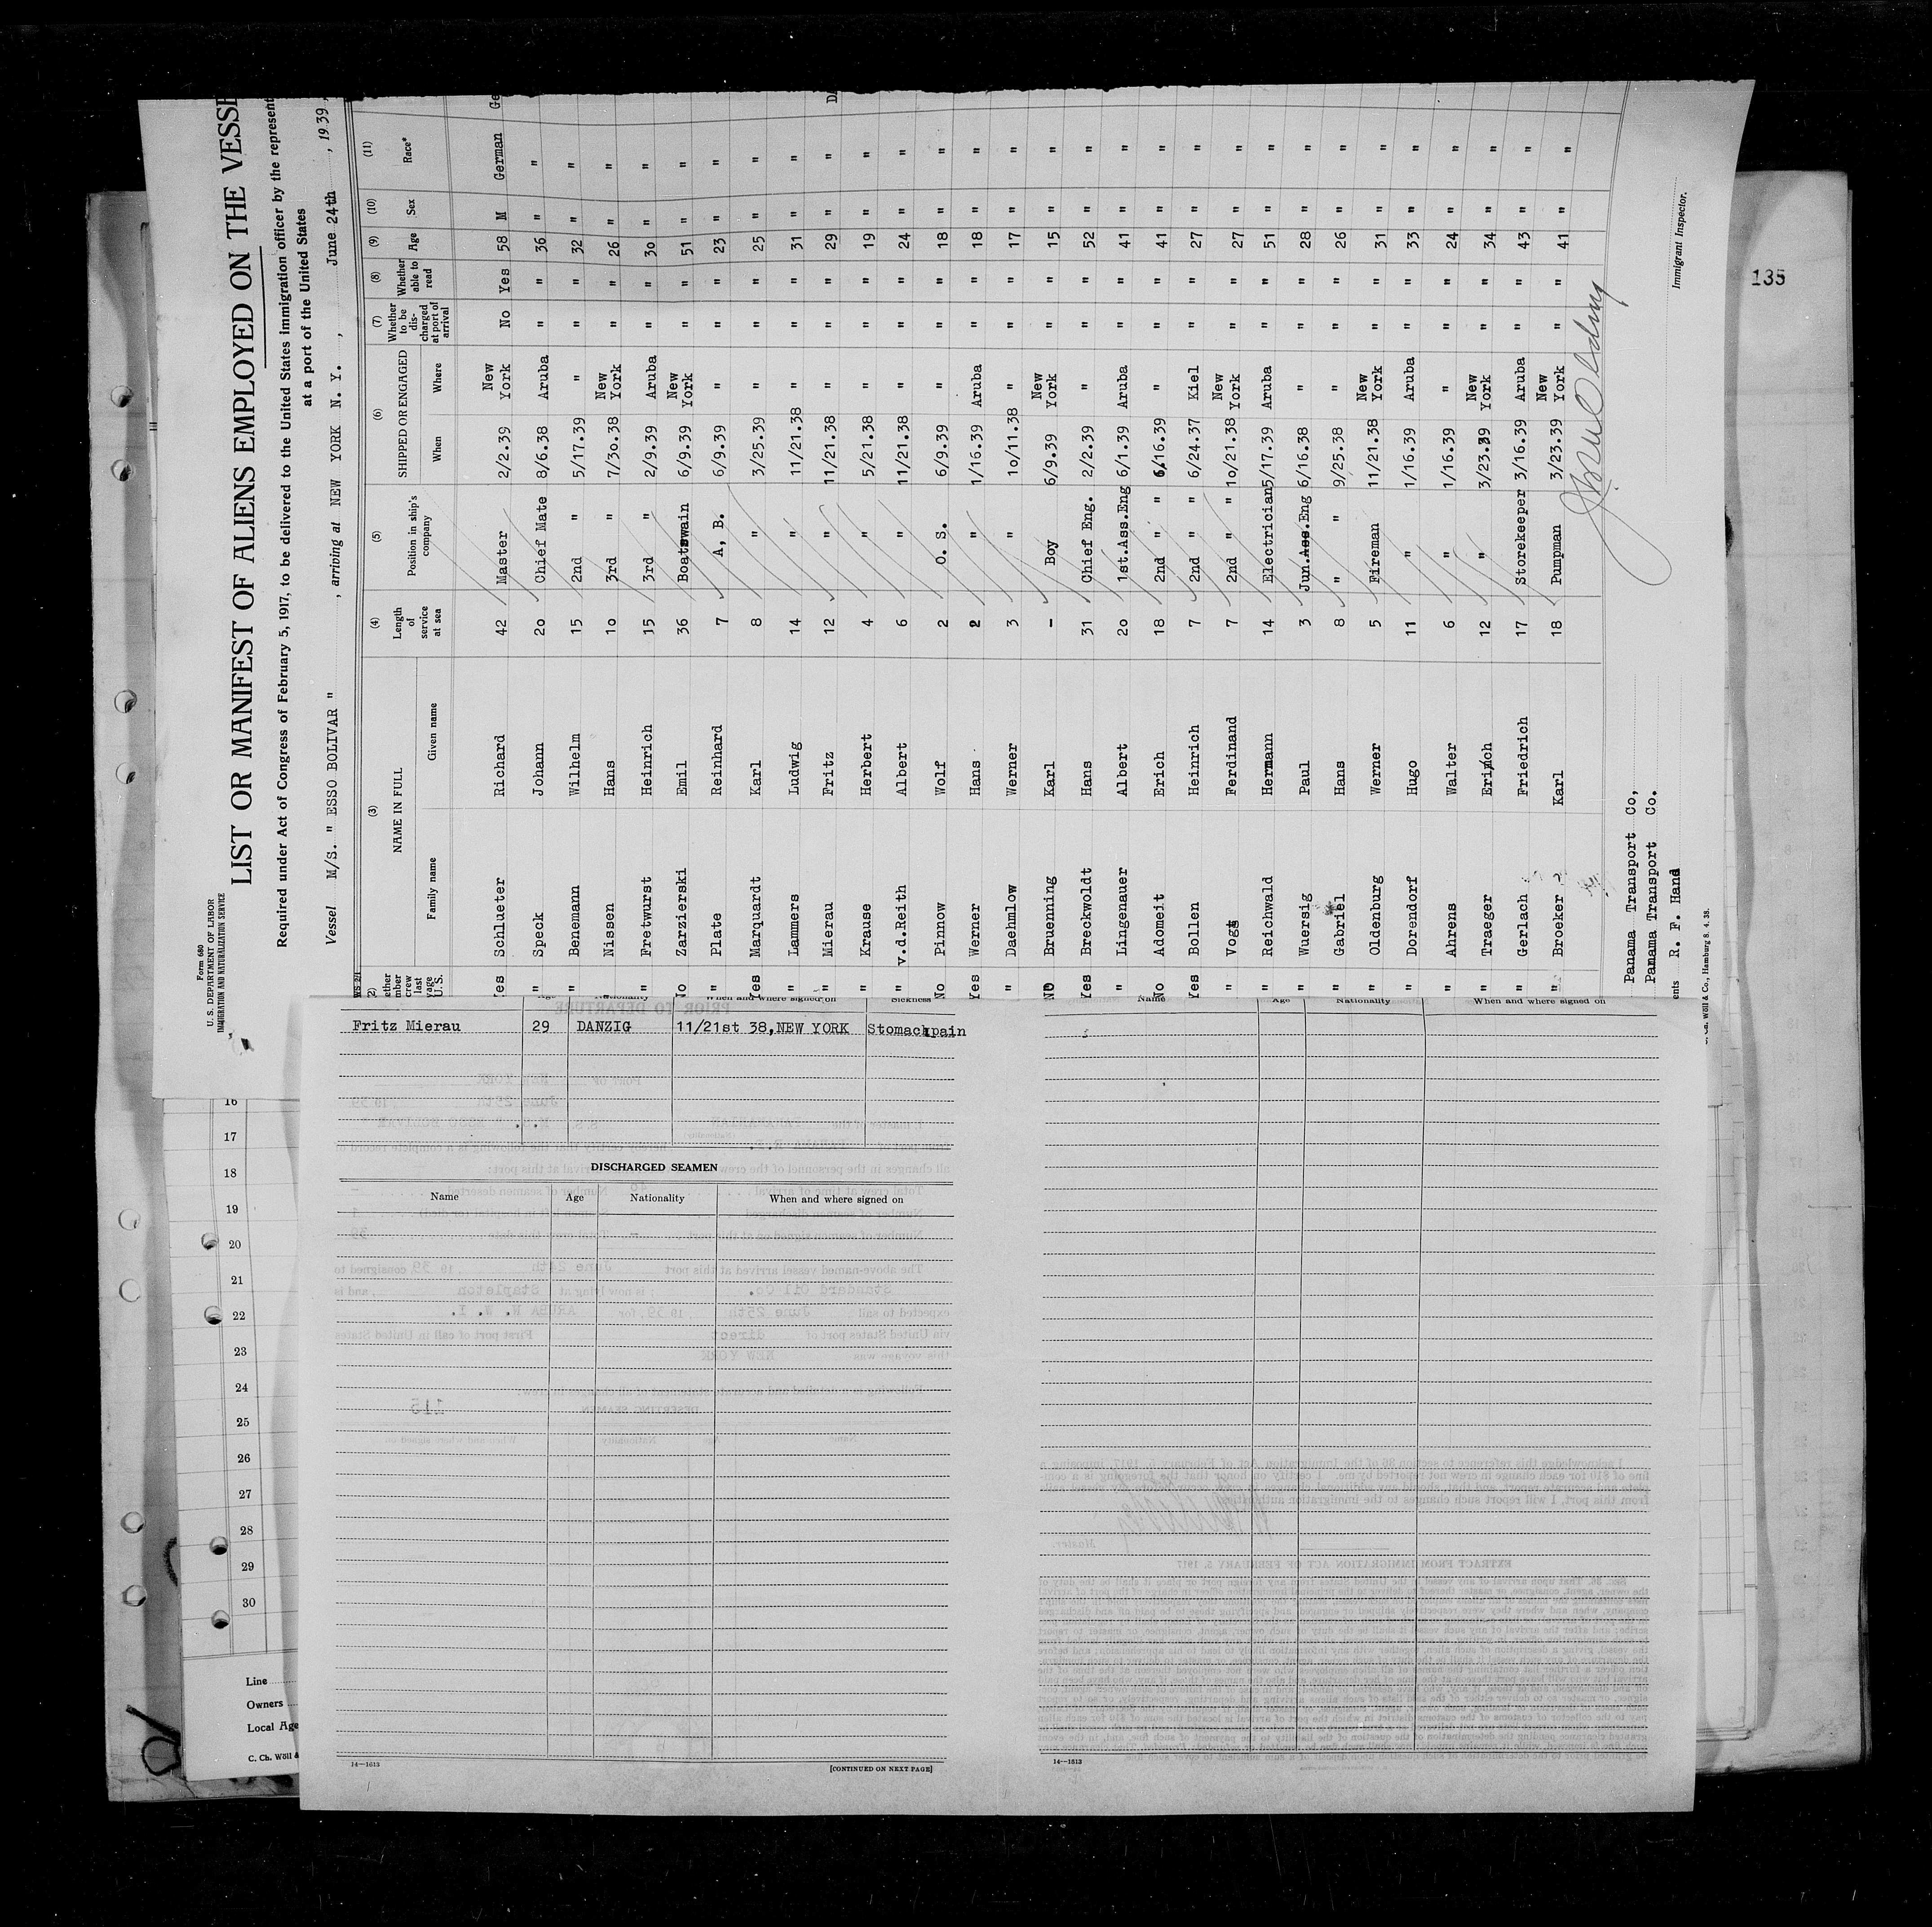 Form 680
U. S. DEPARTMENT OF LABOR
IMMIGRATION AND NATURALIZATION SERVICE
LIST OR MANIFEST OF ALIENS EMPLOYED ON THE VESSE
Required under Act of Congress of February 5, 1917, to be delivered to the United States immigration officer by the represent
at a port of the United States
Vessel M/S. " ESSO BOLIVAR " , arriving at NEW YORK N. Y. , June 24th , 19 39
(3) (4) (5) (6) (7) (8) (9) (10) (11)
NAME IN FULL Length of service at sea Position in ship's company SHIPPED OR ENGAGED Whether to be discharged at port of arrival Whether able to read Age Sex Race*
Family name Given name When Where
Yes Schlueter Richard 42 Master 2/2.39 New York No Yes 58 M German Ge
" Speck Johann 20 Chief Mate 8/6.38 Aruba " " 36 " "
" Benemann Wilhelm 15 2nd " 5/17.39 " " " 32 " "
" Nissen Hans 10 3rd " 7/30.38 New York " " 26 " "
" Fretwurst Heinrich 15 3rd " 2/9.39 Aruba " " 30 " "
No Zarzierski Emil 36 Boatswain 6/9.39 New York " " 51 " "
" Plate Reinhard 7 A, B. 6/9.39 " " " 23 " "
Yes Marquardt Karl 8 " 3/25.39 " " " 25 " "
" Lammers Ludwig 14 " 11/21.38 " " " 31 " "
" Mierau Fritz 12 " 11/21.38 " " " 29 " "
" Krause Herbert 4 " 5/21.38 " " " 19 " "
" v.d.Reith Albert 6 " 11/21.38 " " " 24 " "
No Pinnow Wolf 2 O. S. 6/9.39 " " " 18 " "
Yes Werner Hans 2 " 1/16.39 Aruba " " 18 " "
" Daehmlow Werner 3 " 10/11.38 " " " 17 " "
NO Bruenning Karl - Boy 6/9.39 New York " " 15 " "
Yes Breckwoldt Hans 31 Chief Eng. 2/2.39 " " " 52 " "
" Lingenauer Albert 20 1st.Ass.Eng 6/1.39 Aruba " " 41 " "
No Adomeit Erich 18 2nd " " 6/16.39 " " " 41 " "
Yes Bollen Heinrich 7 2nd " " 6/24.37 Kiel " " 27 " "
" Vogt Ferdinand 7 2nd " " 10/21.38 New York " " 27 " "
" Reichwald Hermann 14 Electrician 5/17.39 Aruba " " 51 " "
" Wuersig Paul 3 Jun.Ass.Eng 6/16.38 " " " 28 " "
" Gabriel Hans 8 " " 9/25.38 " " " 26 " "
" Oldenburg Werner 5 Fireman 11/21.38 New York " " 31 " "
" Dorendorf Hugo 11 " 1/16.39 Aruba " " 33 " "
" Ahrens Walter 6 " 1/16.39 " " " 24 " "
" Traeger Erich 12 " 3/23.39 New York " " 34 " "
" Gerlach Friedrich 17 Storekeeper 3/16.39 Aruba " " 43 " "
" Broeker Karl 18 Pumpman 3/23.39 New York " " 41 " "
Panama Transport Co,
Panama Transport Co.
ents R. F. Hand
Immigrant Inspector.
Ch. Wöll & Co., Hamburg 8. 4. 38.
135
Age Nationality When and where signed on Sickness
Fritz Mierau 29 DANZIG 11/21st 38,NEW YORK Stomach pain
DISCHARGED SEAMEN
Name Age Nationality When and where signed on
14—1613
[CONTINUED ON NEXT PAGE]
Name Age Nationality When and where signed on
14—1613
16
17
18
19
20
21
22
23
24
25
26
27
28
29
30
Line
Owners
Local Age
C. Ch. Wöll &